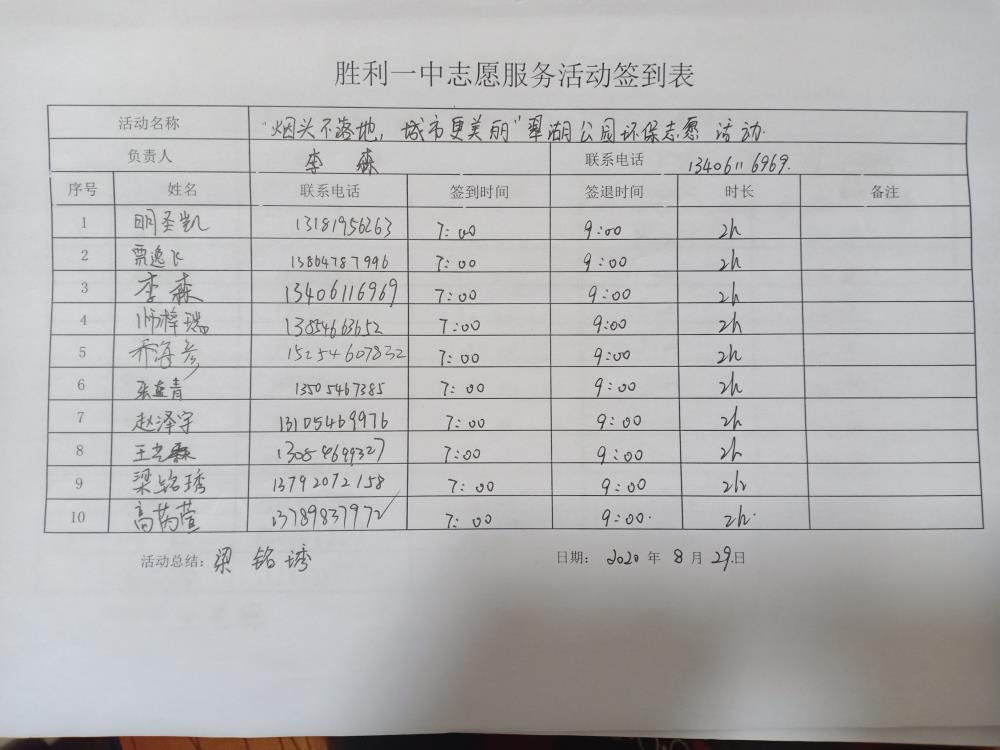 胜利一中志愿服务活动签到表
活动名称 "烟头不落地，城市更美丽"翠湖公园环保志愿活动.
负责人 李森 联系电话 13406116969.
序号 姓名 联系电话 签到时间 签退时间 时长 备注
1 明圣凯 13181956263 7:00 9:00 2h
2 贾逸飞 13864787996 7:00 9:00 2h
3 李森 13406116969 7:00 9:00 2h
4 师梓瑞 13854663652 7:00 9:00 2h
5 乔海彦 15254607832 7:00 9:00 2h
6 张直青 13505467385 7:00 9:00 2h
7 赵泽宇 13105469976 7:00 9:00 2h
8 王艺霖 13054699327 7:00 9:00 2h
9 梁铭琇 13792072158 7:00 9:00 2h
10 高芮萱 13789837972 7:00 9:00. 2h.
活动总结：梁铭琇 日期： 2020 年 8 月 29 日